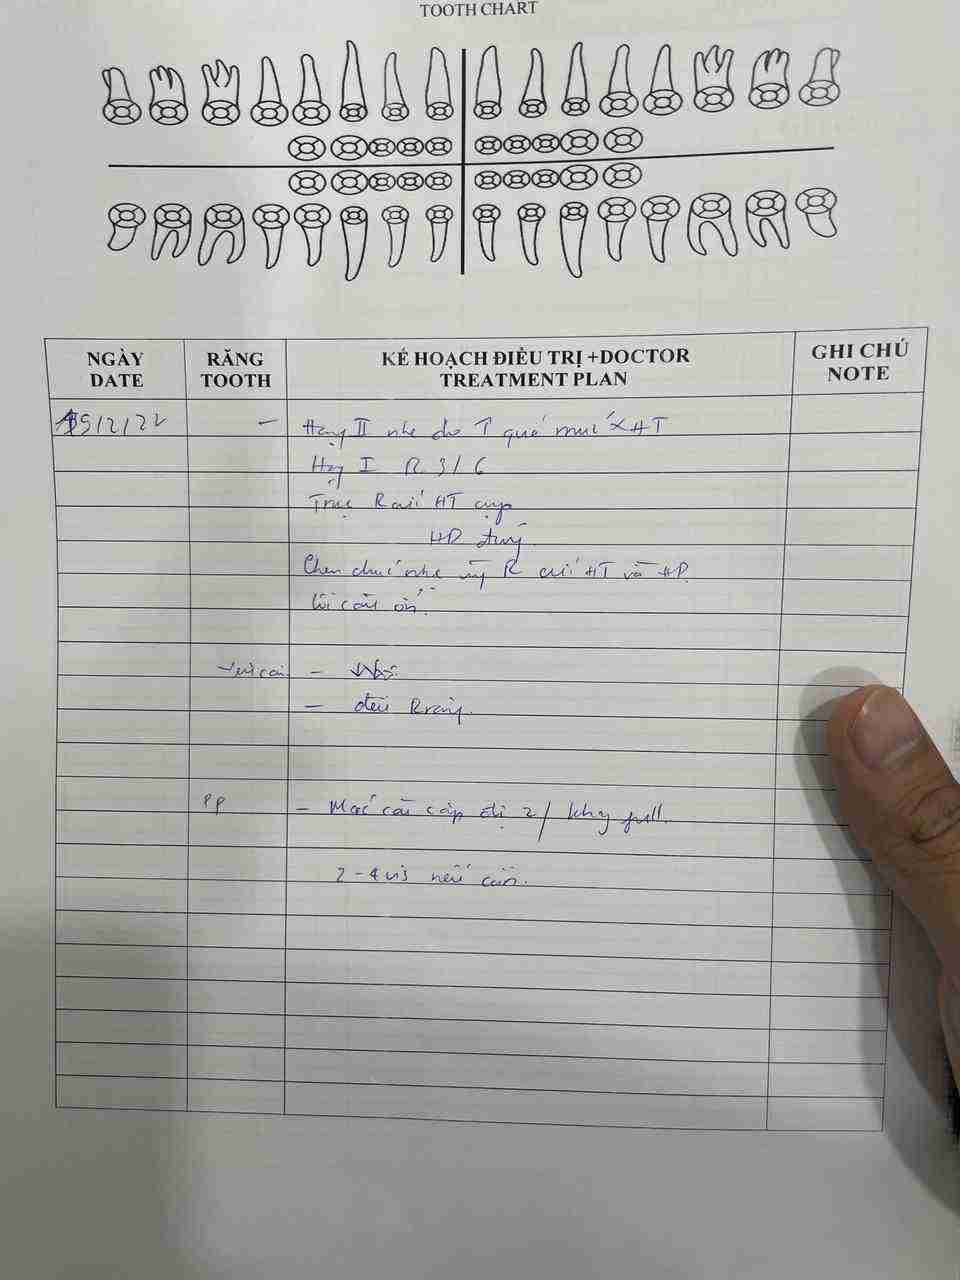 TOOTH CHART
NGÀY
DATE
RĂNG
TOOTH
KẾ HOẠCH ĐIỀU TRỊ +DOCTOR
TREATMENT PLAN
GHI CHÚ
NOTE
15/2/22 - Hạng II nhẹ do ↑ quá mức XHT
Hạng I R 3/6
Trục R cửi HT cụp
HD đứng
Chen chúc nhẹ R cửi HT và HD.
-
- đều Răng.
PP - Mắc cài cấp đi 2/ full.
2-4 vis nếu cần.